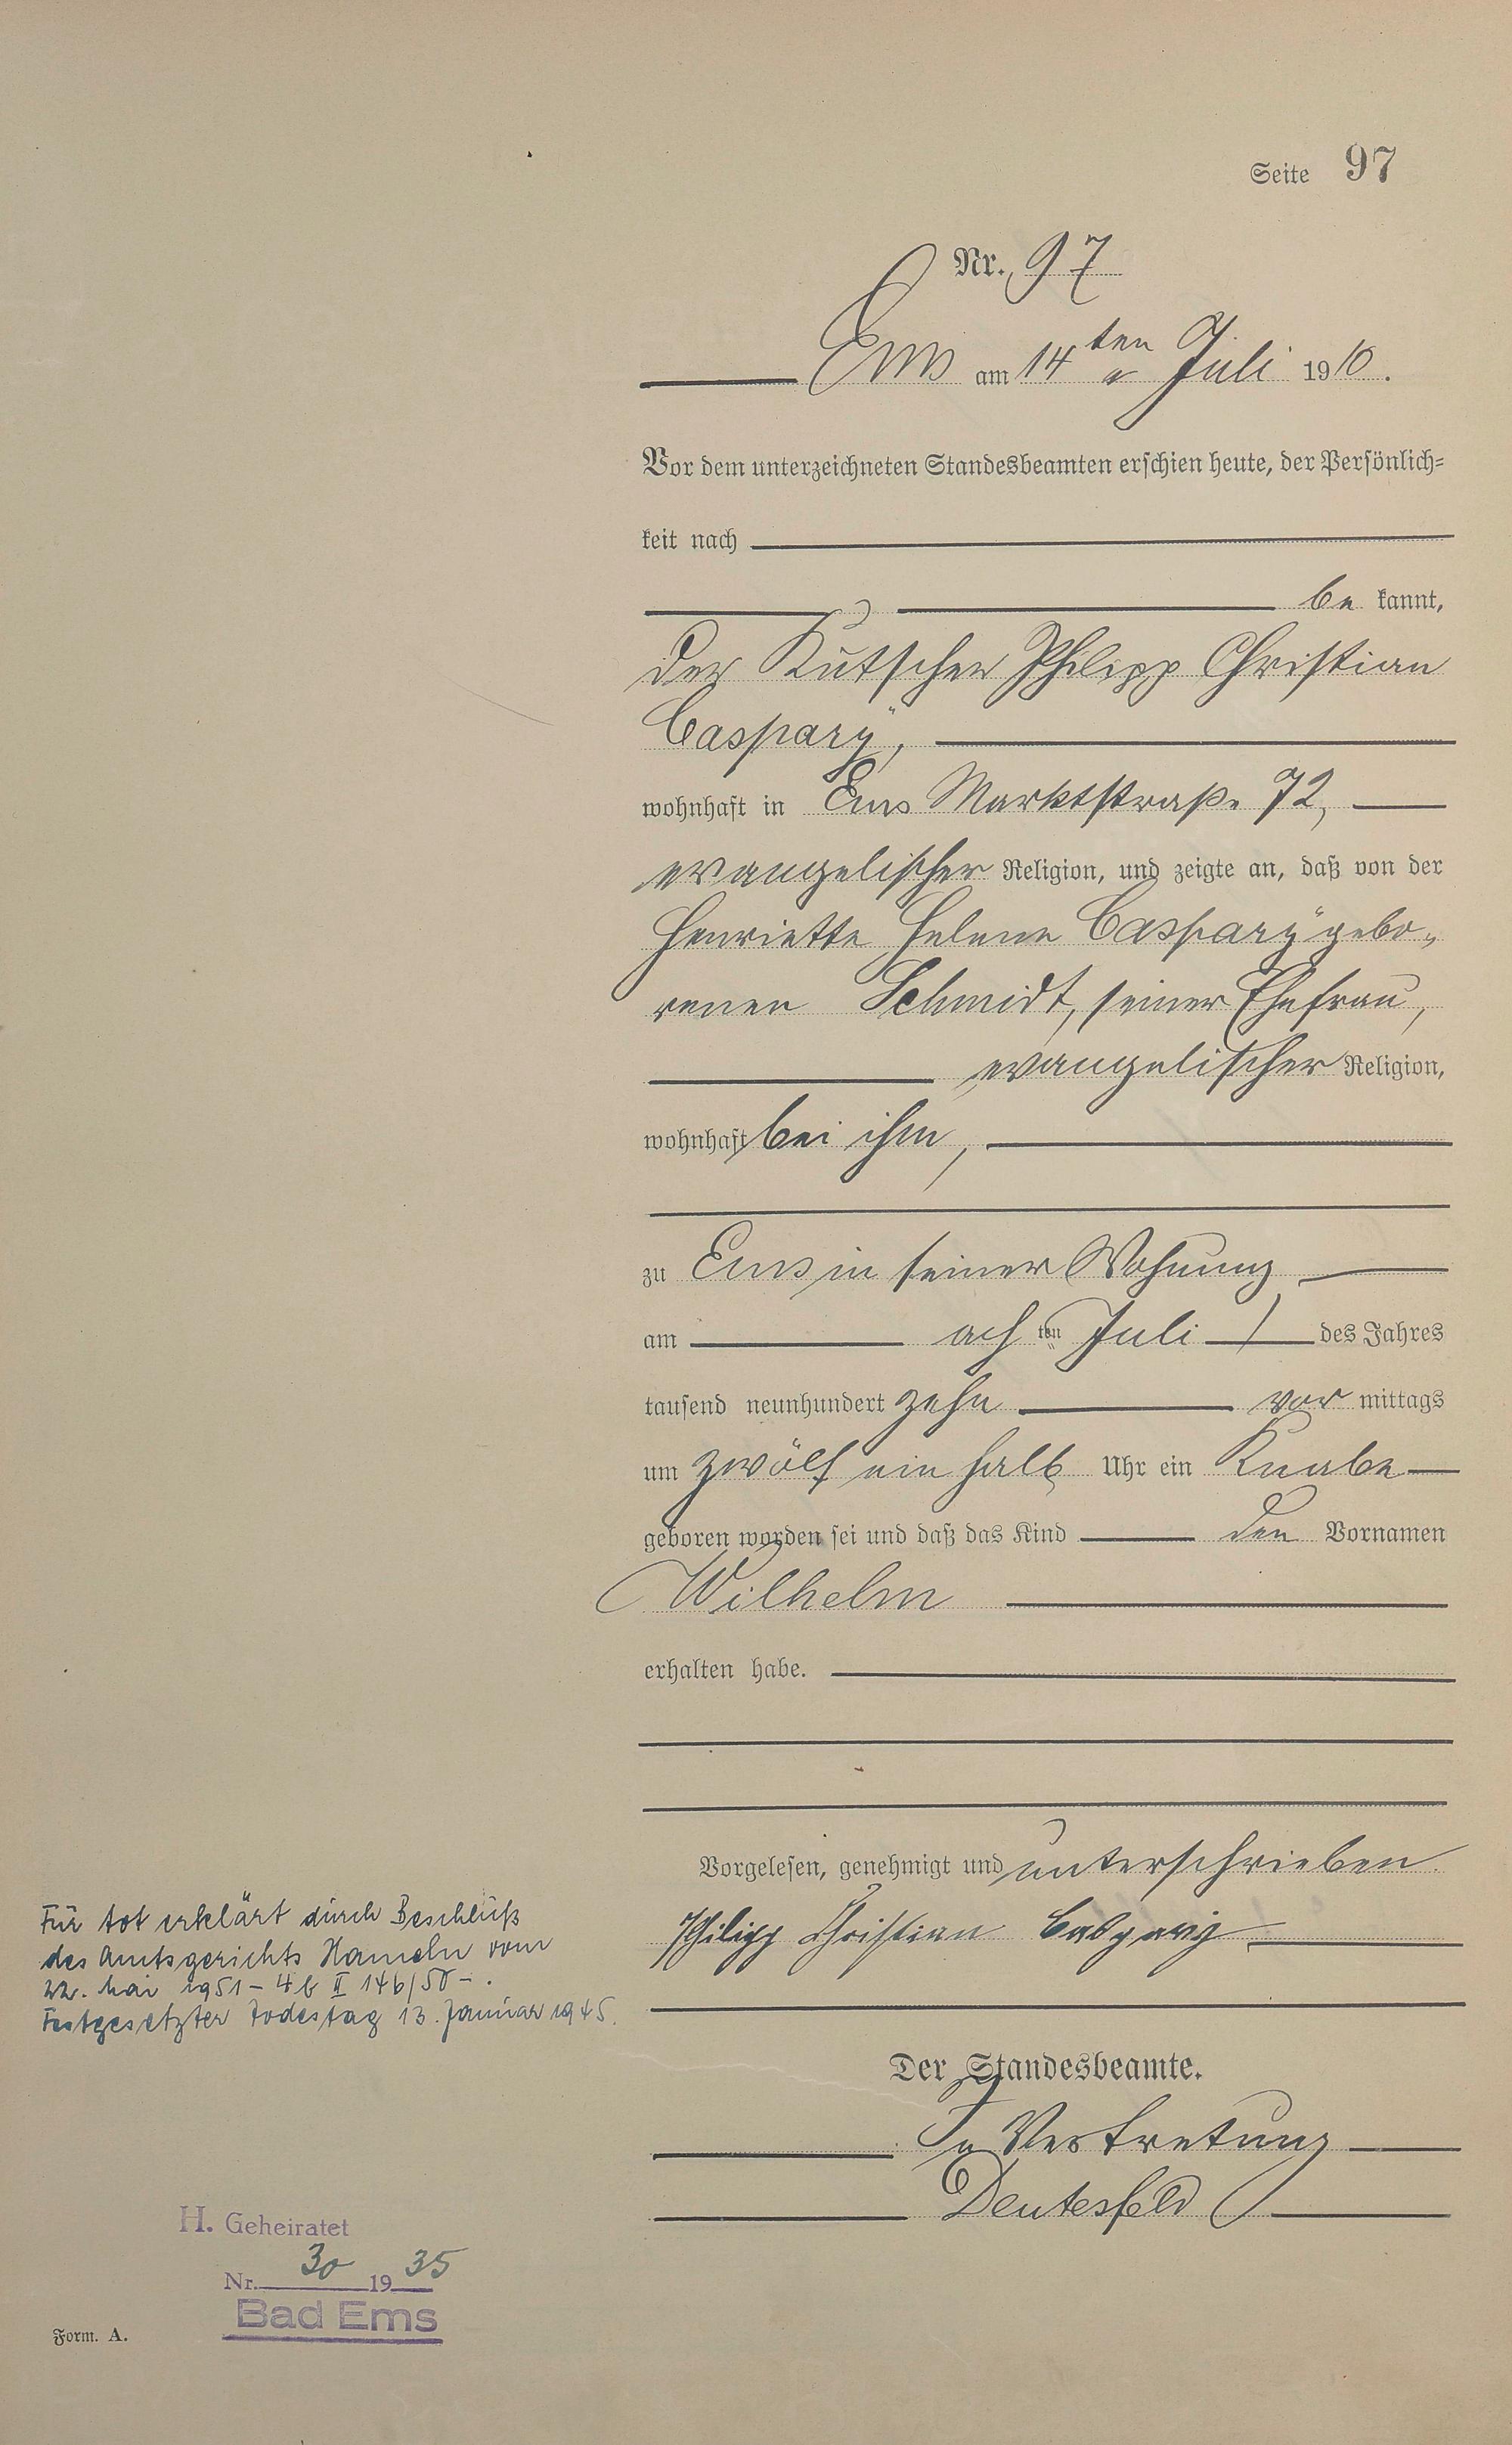 Seite 97
Nr. 97
Ems am 14ten Juli 1910.
Vor dem unterzeichneten Standesbeamten erschien heute, der Persönlich=
keit nach
be kannt,
der Kutscher Philipp Christian
Caspary,
wohnhaft in Ems Marktstraße 72,
evangelischer Religion, und zeigte an, daß von der
Henriette Helene Caspary gebo„
renen Schmidt, seiner Ehefrau,
evangelischer Religion,
wohnhaft bei ihm,
zu Ems in seiner Wohnung
am achten Juli des Jahres
tausend neunhundert zehn vor mittags
um zwölf ein halb Uhr ein Knabe
geboren worden sei und daß das Kind den Vornamen
Wilhelm
erhalten habe.
Vorgelesen, genehmigt und unterschrieben.
Philipp Christian Caspary
Der Standesbeamte.
In Vertretung
Deutesfeld
Für tot erklärt durch Beschluß
des Amtsgerichts Hameln vom
22. Mai 1951 – 4b II 146/50 – .
Festgesetzter Todestag 13. Januar 1945.
H. Geheiratet
Nr. 30 1935
Bad Ems
Form. A.